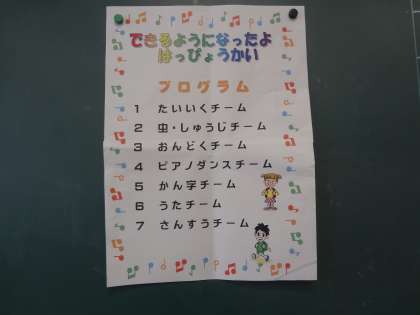 できるようになったよ
はっぴょうかい
プログラム
1 たいいくチーム
2 虫・しゅうじチーム
3 おんどくチーム
4 ピアノダンスチーム
5 かん字チーム
6 うたチーム
7 さんすうチーム